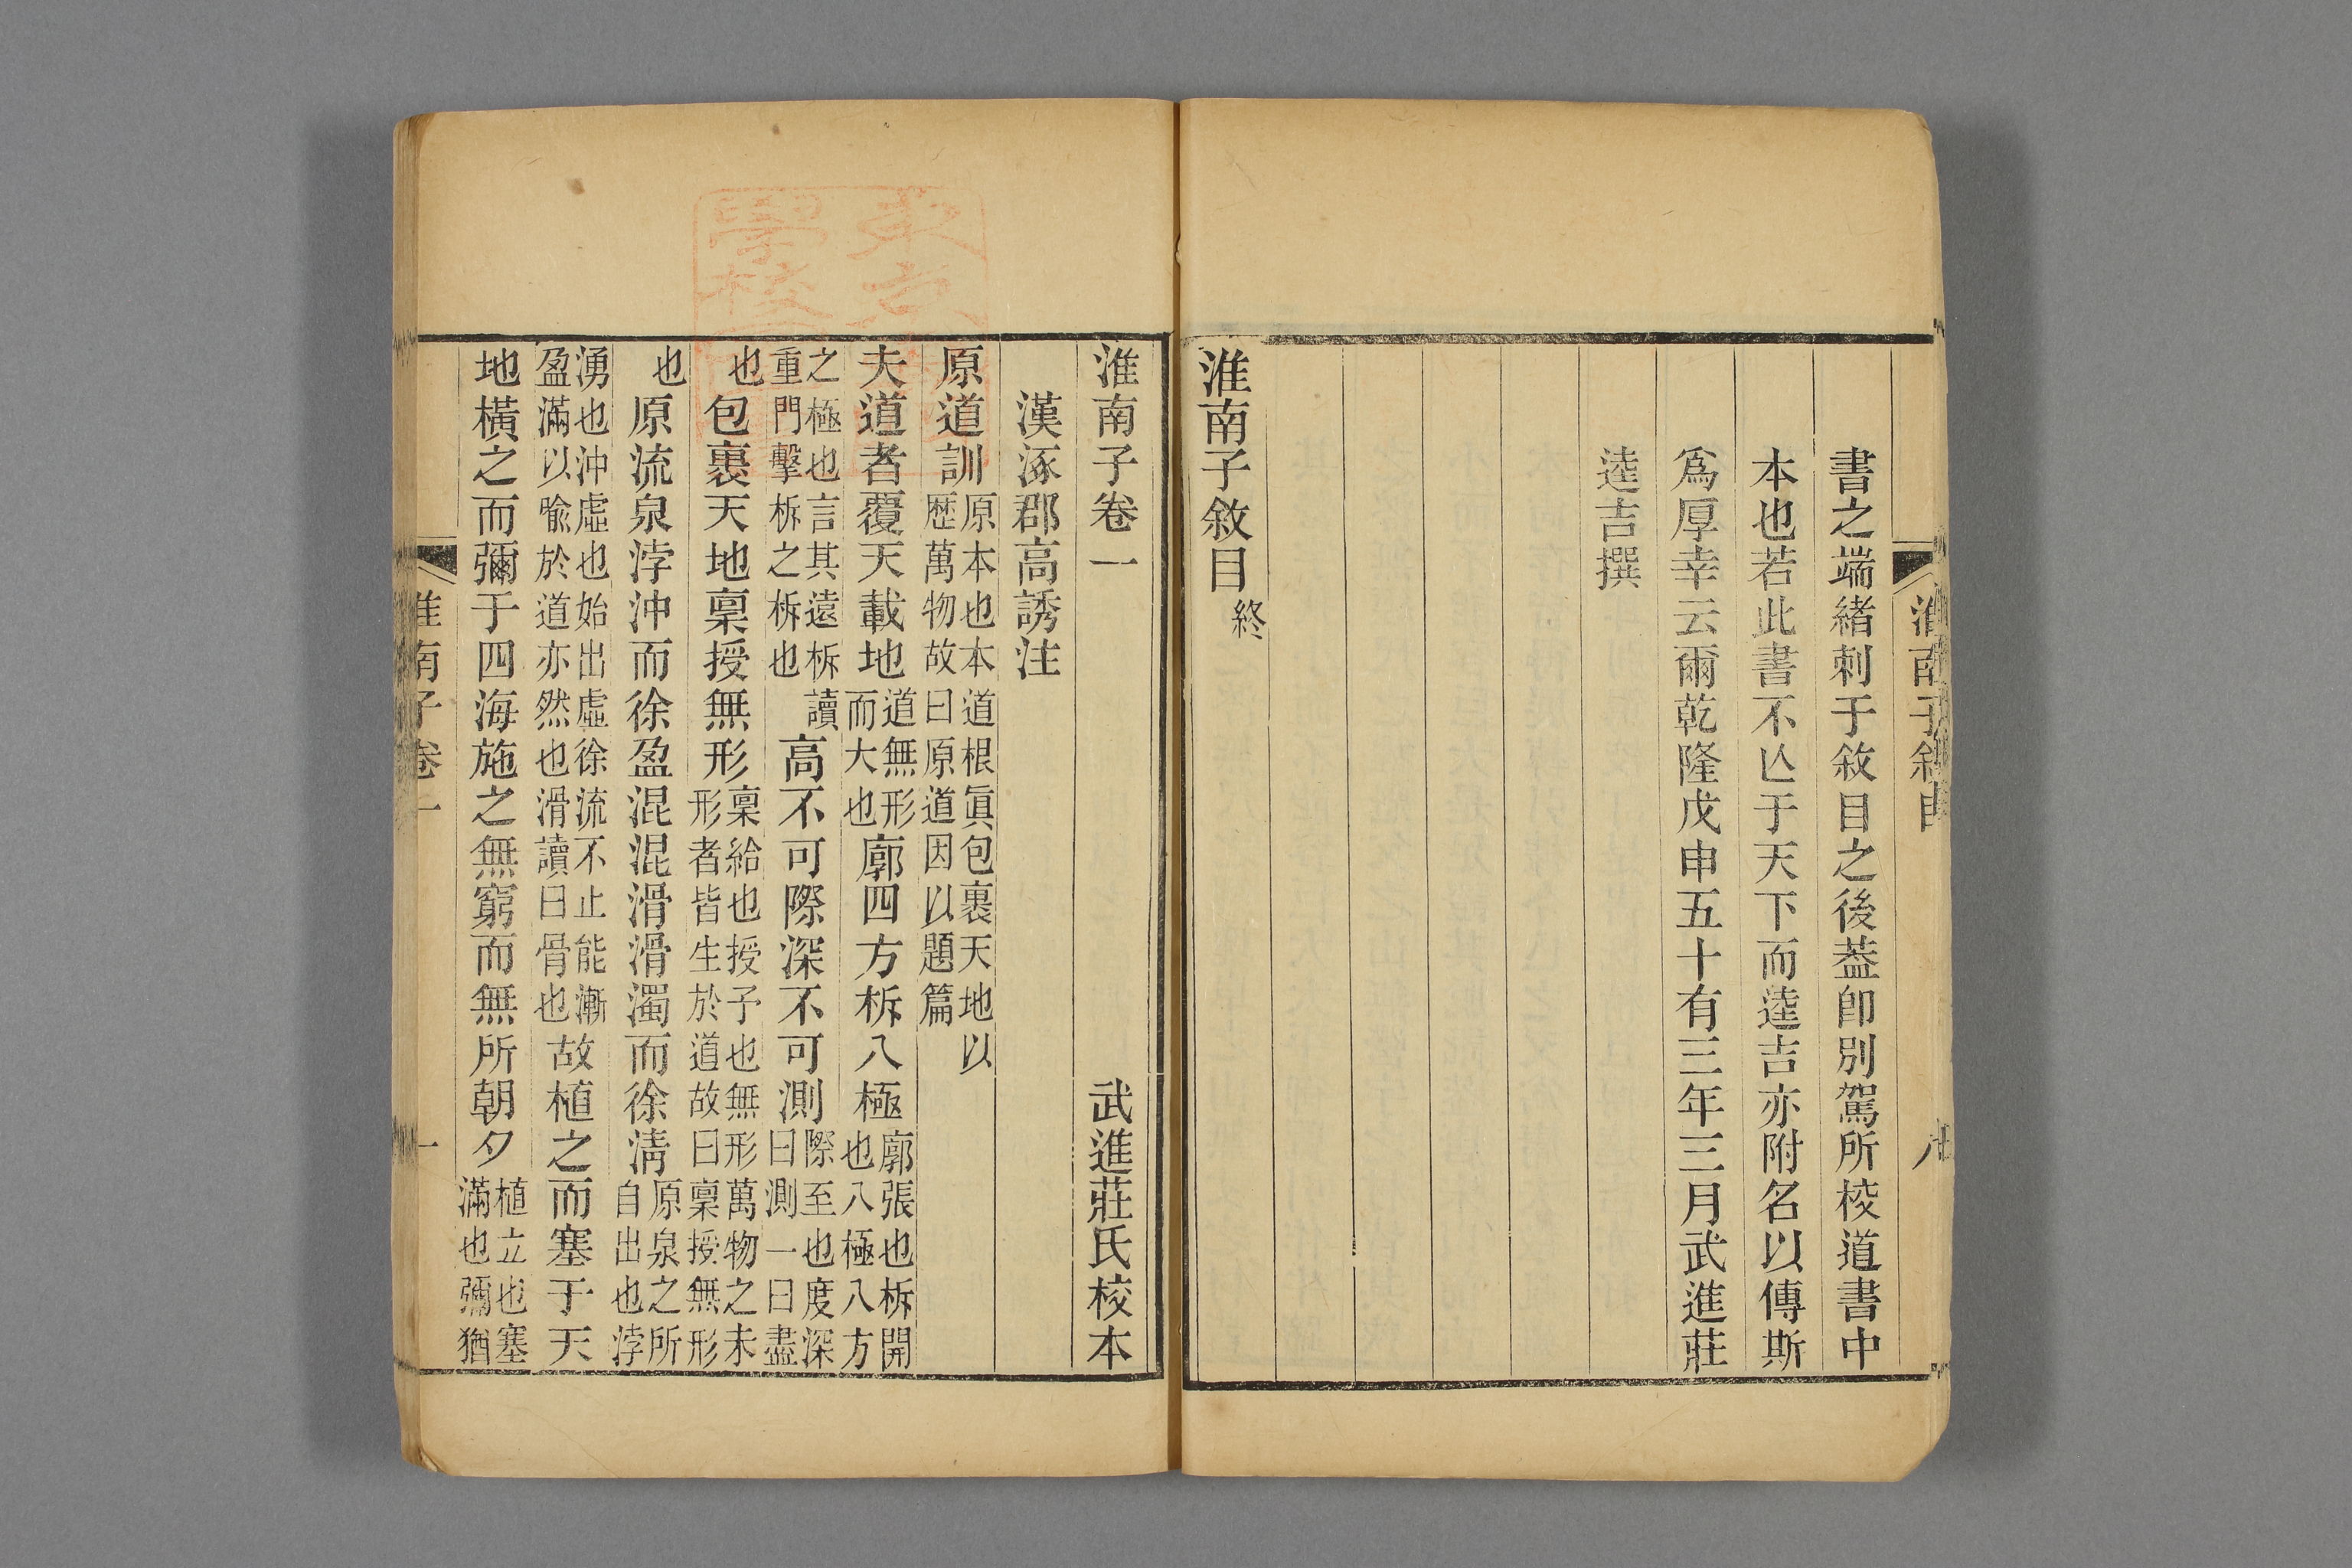 書之端緒刺于敘目之後葢即別駕所校道書中
本也若此書不亾于天下而逵吉亦附名以傳斯
爲厚幸云爾乾隆戊申五十有三年三月武進莊
逵吉撰
淮南子敘目終
淮南子卷一 武進莊氏校本
漢涿郡高誘注
原道訓原本也本道根眞包裹天地以歷萬物故曰原道因以題篇
夫道者覆天載地道無形而大也廓四方柝八極廓張也柝開也八極八方
之極也言其遠柝讀重門擊柝之柝也高不可際深不可測際至也度深曰測一曰盡
也包裹天地稟授無形稟給也授予也無形萬物之未形者皆生於道故曰稟授無形
也原流泉浡沖而徐盈混混滑滑濁而徐淸原泉之所自出也浡
湧也沖虛也始出虛徐流不止能漸盈滿以喩於道亦然也滑讀曰骨也故植之而塞于天
地橫之而彌于四海施之無窮而無所朝夕植立也塞滿也彌猶